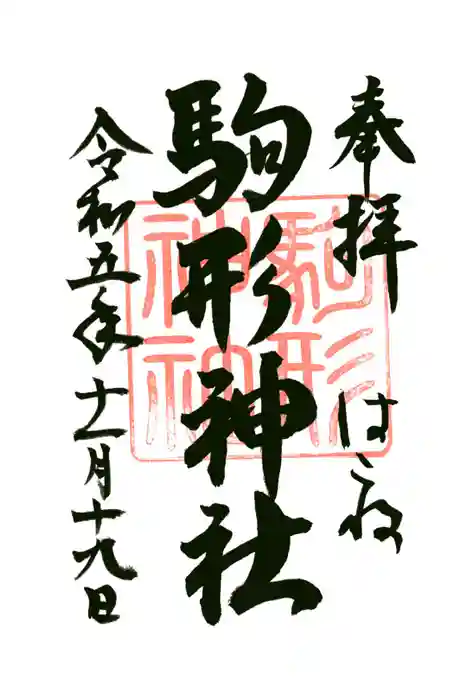 奉拝
はこね
駒形神社
駒形
神社
令和五年十一月十九日